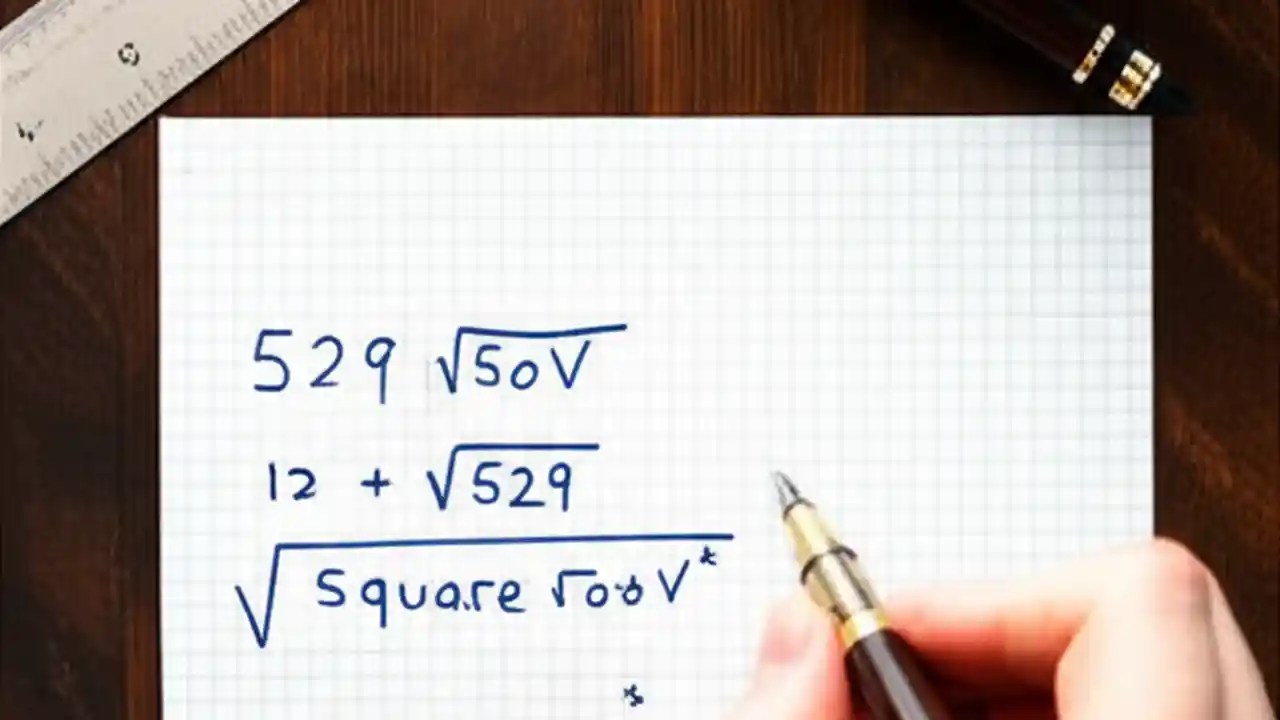 529 √50V
12 + √529
√Square root V*